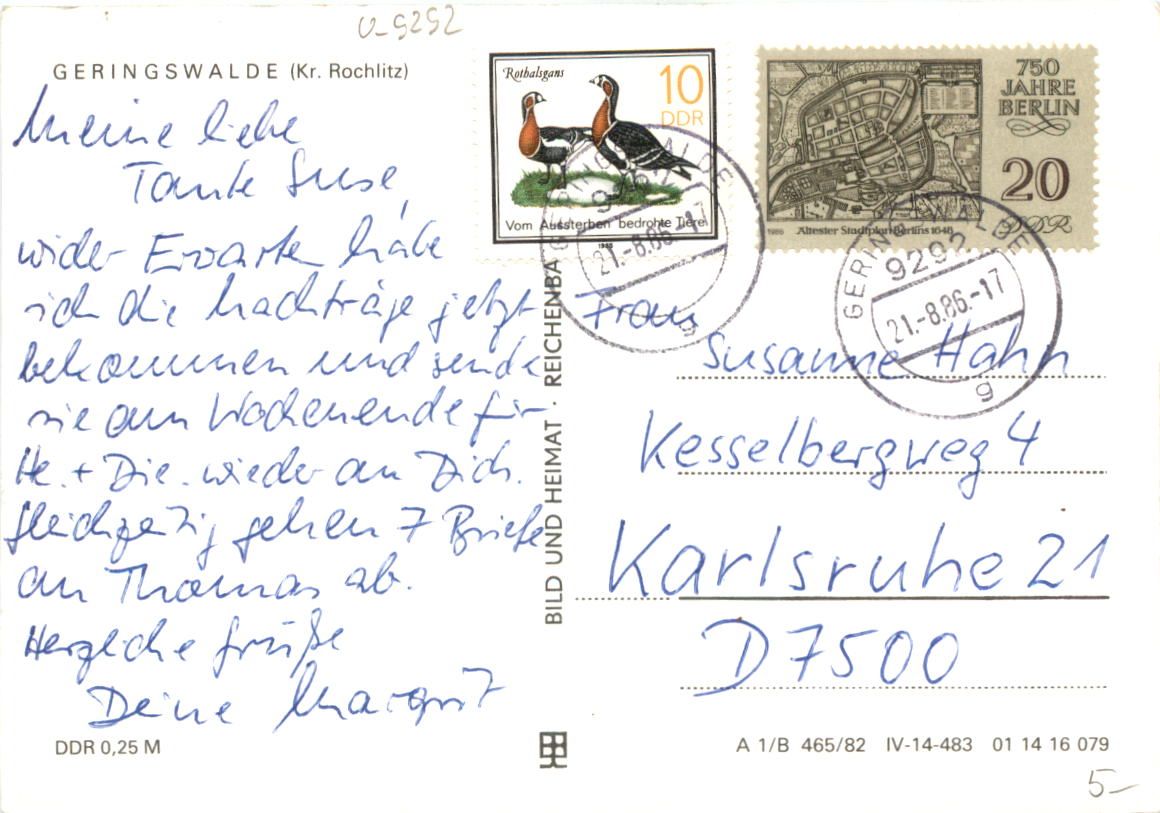 U-9292
GERINGSWALDE (Kr. Rochlitz)
Meine liebe
Tante Suse,
wider Erwarten habe
ich die Nachträge jetzt
bekommen und sende
sie am Wochenende für
He. + Die. wieder an Dich.
Gleichzeitig gehen 7 Briefe
an Thomas ab.
Herzliche Grüße
Deine Margit
DDR 0,25 M
BILD UND HEIMAT · REICHENBA
Rothalsgans
10
DDR
Vom Aussterben bedrohte Tiere
1985
750
JAHRE
BERLIN
20
DDR
1986 Ältester Stadtplan Berlins 1648
GERINGSWALDE
92
21.-8.86.-17
g
GERINGSWALDE
9292
21.-8.86.-17
g
Frau
Susanne Hahn
Kesselbergweg 4
Karlsruhe 21
D 7500
A 1/B 465/82 IV-14-483 01 14 16 079
5-